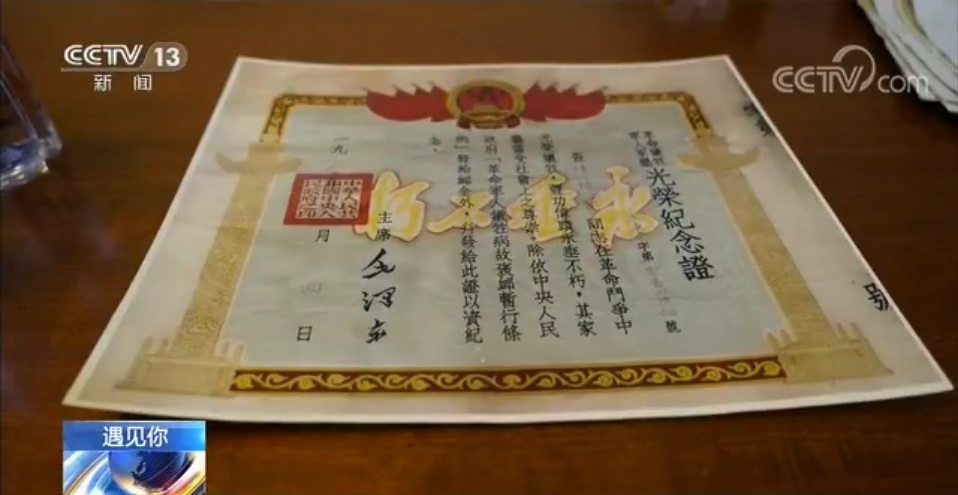 CCTV 13
新闻
CCTV.com
革命犧牲
軍人家屬
光榮紀念證
字第 號
查 同志在革命鬥爭中
光榮犧牲，豐功偉績永垂不朽，其家
屬當受社會上之尊崇。除依中央人民
政府「革命軍人犧牲病故褒卹暫行條
例」發給卹金外，並發給此證以資紀
念。
永垂不朽
主席 毛澤東
一九 月 四日
中華人民共
和國中央人
民政府之印
號
遇见你